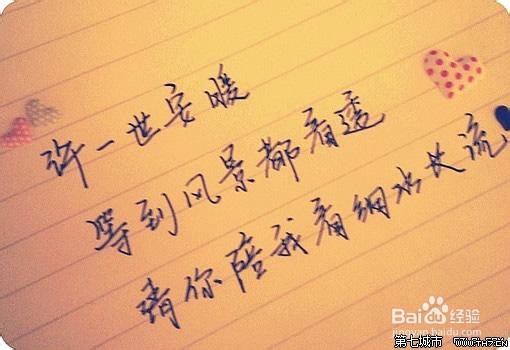 许一世安暖
等到风景都看透
请你陪我看细水长流
Baidu经验
jingyan.baidu.com
第七城市